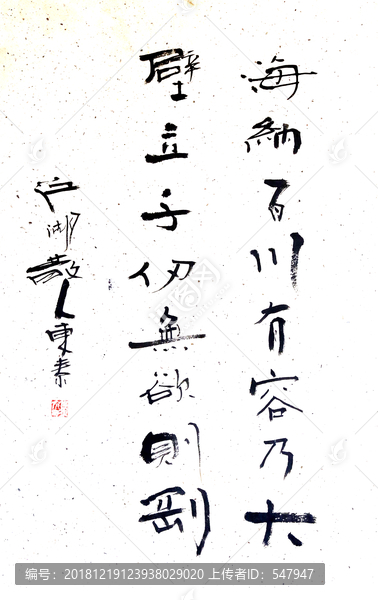 海納百川有容乃大
壁立千仞無欲則剛
江湖散人東泰
编号：20181219123938029020 上传者ID：547947